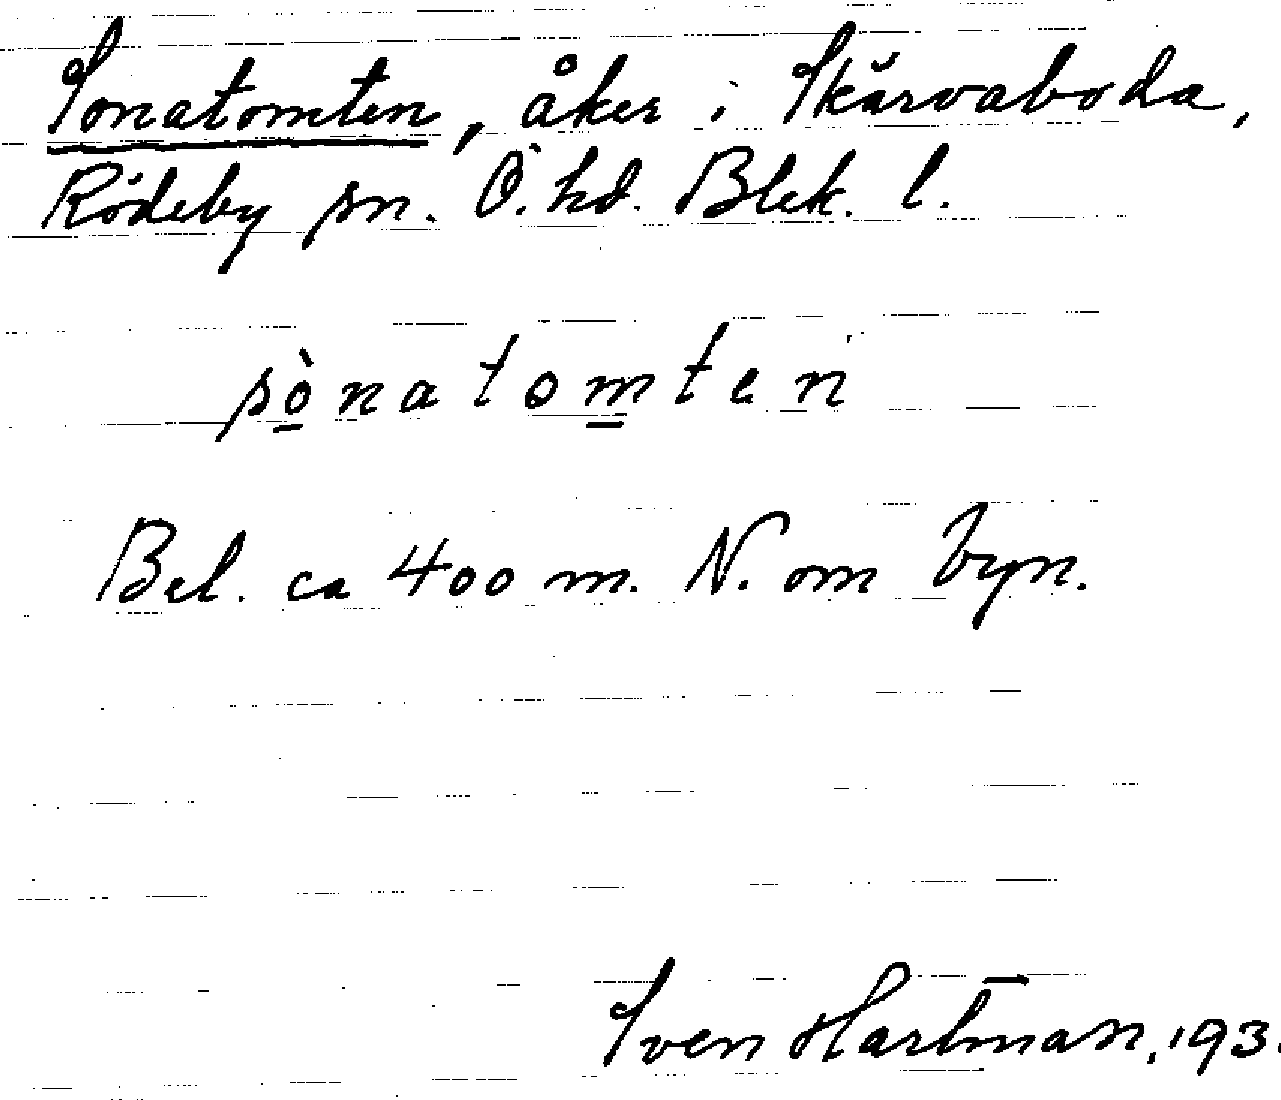 Sonatomten, åker i Skärvaboda,
Rödeby sn. Ö. hd. Blek. l.
sònatomten
Bel. ca 400 m. N. om byn.
Sven Hartman, 193.